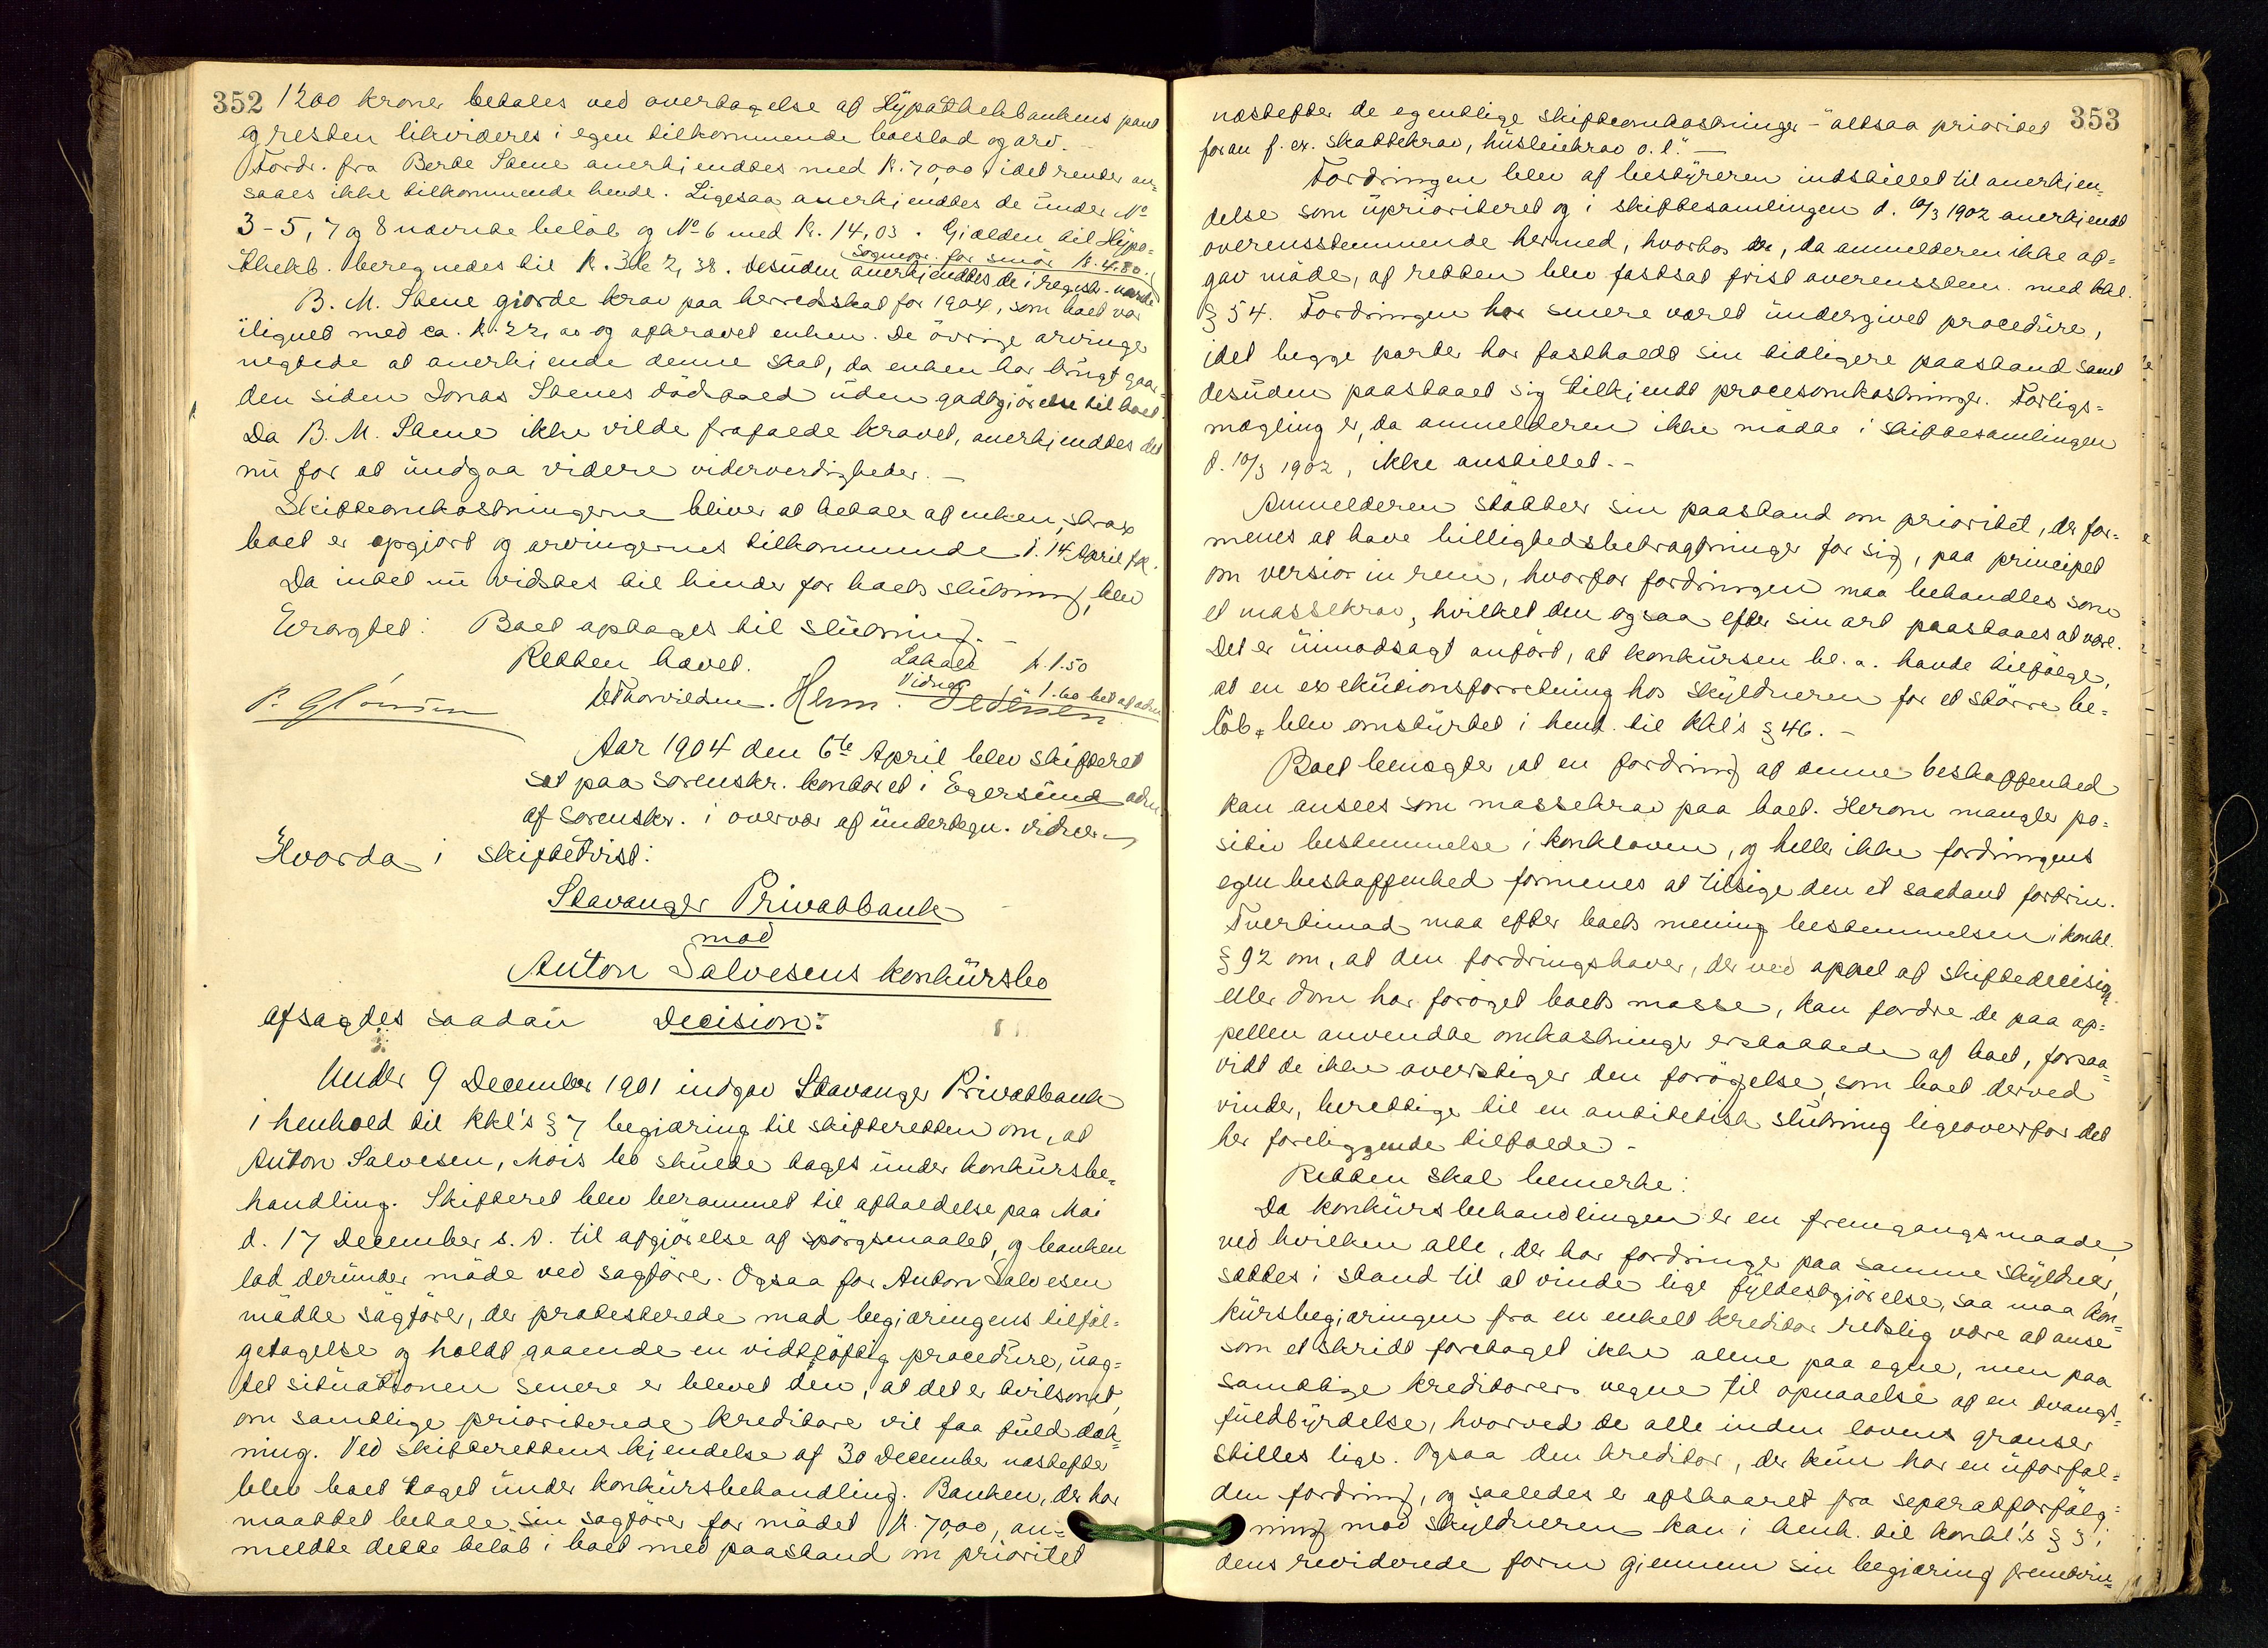 352
1200 kroner betales ved overtagelse af Hypothekbankens pant
og resten likvideres i egen tilkommende boeslod og arv. —
Fordr. fra Berte Stene anerkjendtes med k. 70,00, idet renter an-
saaes ikke tilkommende hende. Ligesaa anerkjendtes de under No
3-5, 7 og 8 nævnte beløb og No 6 med k. 14,03. Gjælden til Hypo-
thekb. beregnedes til k. 3162,38. Desuden anerkjendtes de i regist. nævnte
Sognepr. for smør k. 4.80.
B. M. Stene gjorde krav paa herredsskat for 1904, som boet var
ilignet med ca. k. 22,00 og afkrævet enken. De øvrige arvinger
negtede at anerkjende denne skat, da enken har brugt gaar-
den siden Jonas Stenes dødsfald uden godtgjørelse til boet.
Da B. M. Stene ikke vilde frafalde kravet, anerkjendtes det
nu for at undgaa videre viderverdigheder. —
Skifteomkostningerne bliver at betale af enken, strax
boet er opgjort og arvingernes tilkommende d. 14 April f.k.
Da intet nu vidstes til hinder for boets slutning, blev
Eragtet: Boet optages til slutning. —
Retten hævet.
Lokale k. 1.50
Vidner 1.60 bet af adm
P. Glørsen
Thorvildsen. Herm. Pedersen
Aar 1904 den 6te April blev skifteret
sat paa sorenskr. kontoret i Egersund adm.
af Sorenskr. i overvær af undertegn. vidner
Hvorda i skiftetvist:
Stavanger Privatbank
mod
Anton Salvesens konkursbo
afsagdes saadan Decision:
Under 9 December 1901 indgav Stavanger Privatbank
i henhold til kkl's § 7 begjæring til skifteretten om, at
Anton Salvesen, Mois bo skulde tages under konkursbe-
handling. Skifteret blev berammet til afholdelse paa Moi
d. 17 December s. A. til afgjørelse af spørgsmaalet, og banken
lod derunder møde ved sagfører. Ogsaa for Anton Salvesen
mødte sagfører, der protesterede mod begjæringens tilføl-
getagelse og holdt gaaende en vidtløftig procedure, uag-
tet situationen senere er blevet den, at det er tvilsomt,
om samtlige prioriterede kreditorer vil faa fuld dæk-
ning. Ved skifterettens kjendelse af 30 December næstefter
blev boet taget under konkursbehandling. Banken, der har
maattet betale sin sagfører for mødet k. 70,00, an-
meldte dette beløb i boet med paastand om prioritet
353
næstefter de egentlige skifteomkostninger - "altsaa prioritet
foran f. ex. skattekrav, husleiekrav o. l." —
Fordringen blev af bestyreren indstillet til anerkjen-
delse som uprioriteret og i skiftesamlingen d. 10/3 1902 anerkjendt
overensstemmende hermed, hvorhos der, da anmelderen ikke af-
gav møde, af retten blev fastsat frist overensstem. med kkl.
§ 54. Fordringen har senere været undergivet procedure,
idet begge parter har fastholdt sin tidligere paastand samt
desuden paastaaet sig tilkjendt procesomkostninger. Forligs-
mægling er, da anmelderen ikke mødte i skiftesamlingen
d. 10/3 1902, ikke anstillet. -
Anmelderen støtter sin paastand om prioritet, der for-
menes at have billighedsbetragtninger for sig, paa principet
om versio in rem, hvorfor fordringen maa behandles som
et massekrav, hvilket den ogsaa efter sin art paastaaes at være.
Det er uimodsagt anført, at konkursen bl. a. havde tilfølge,
at en exekutionsforretning hos skyldneren for et større be-
løb blev omstyrtet i henh. til kkl's § 46. -
Boet benegter, at en fordring af denne beskaffenhed
kan ansees som massekrav paa boet. Herom mangler po-
sitiv bestemmelse i konkloven, og heller ikke fordringens
egen beskaffenhed formenes at tilsige den et saadant fortrin.
Tvertimod maa efter boets mening bestemmelsen i konkl.
§ 92 om, at den fordringshaver, der ved appel af skiftedecision
eller dom har forøget boets masse, kan fordre de paa ap-
pellen anvendte omkostninger erstattede af boet, forsaa-
vidt de ikke overstiger den forøgelse, som boet derved
vinder, berettige til en antitetisk slutning ligeoverfor det
her foreliggende tilfælde -
Retten skal bemerke:
Da konkursbehandlingen er en fremgangsmaade,
ved hvilken alle, der har fordringer paa samme skyldner,
sættes i stand til at vinde lige fyldestgjørelse, saa maa kon-
kursbegjæringen fra en enkelt kreditor retslig være at anse
som et skridt foretaget ikke alene paa egne, men paa
samtlige kreditorers vegne til opnaaelse af en tvangs-
fuldbyrdelse, hvorved de alle inden lovens grænser
stilles lige. Ogsaa den kreditor, der kun har en uforfal-
den fordring, og saaledes er afskaaret fra separatforfølg-
ning mod skyldneren kan i henh. til konkl.'s § 3 i
dens reviderede form gjennem sin begjæring fremtvin-